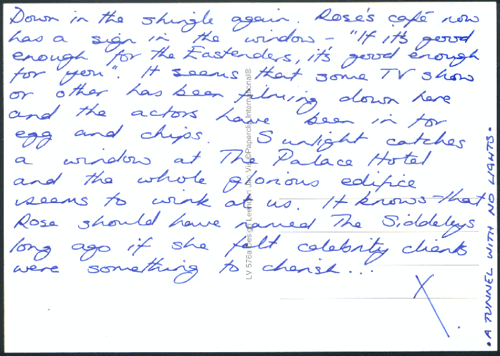 Down in the shingle again. Rose's café now
has a sign in the window - "If it's good
enough for the Eastenders, it's good enough
for you". It seems that some TV show
or other has been filming down here
and the actors have been in for
egg and chips. Sunlight catches
a window at The Palace Hotel
and the whole glorious edifice
seems to wink at us. It knows - that
Rose should have named The Siddeleys
long ago if she felt celebrity clients
were something to cherish...
X.
• A TUNNEL WITH NO LIGHTS •
LV 576